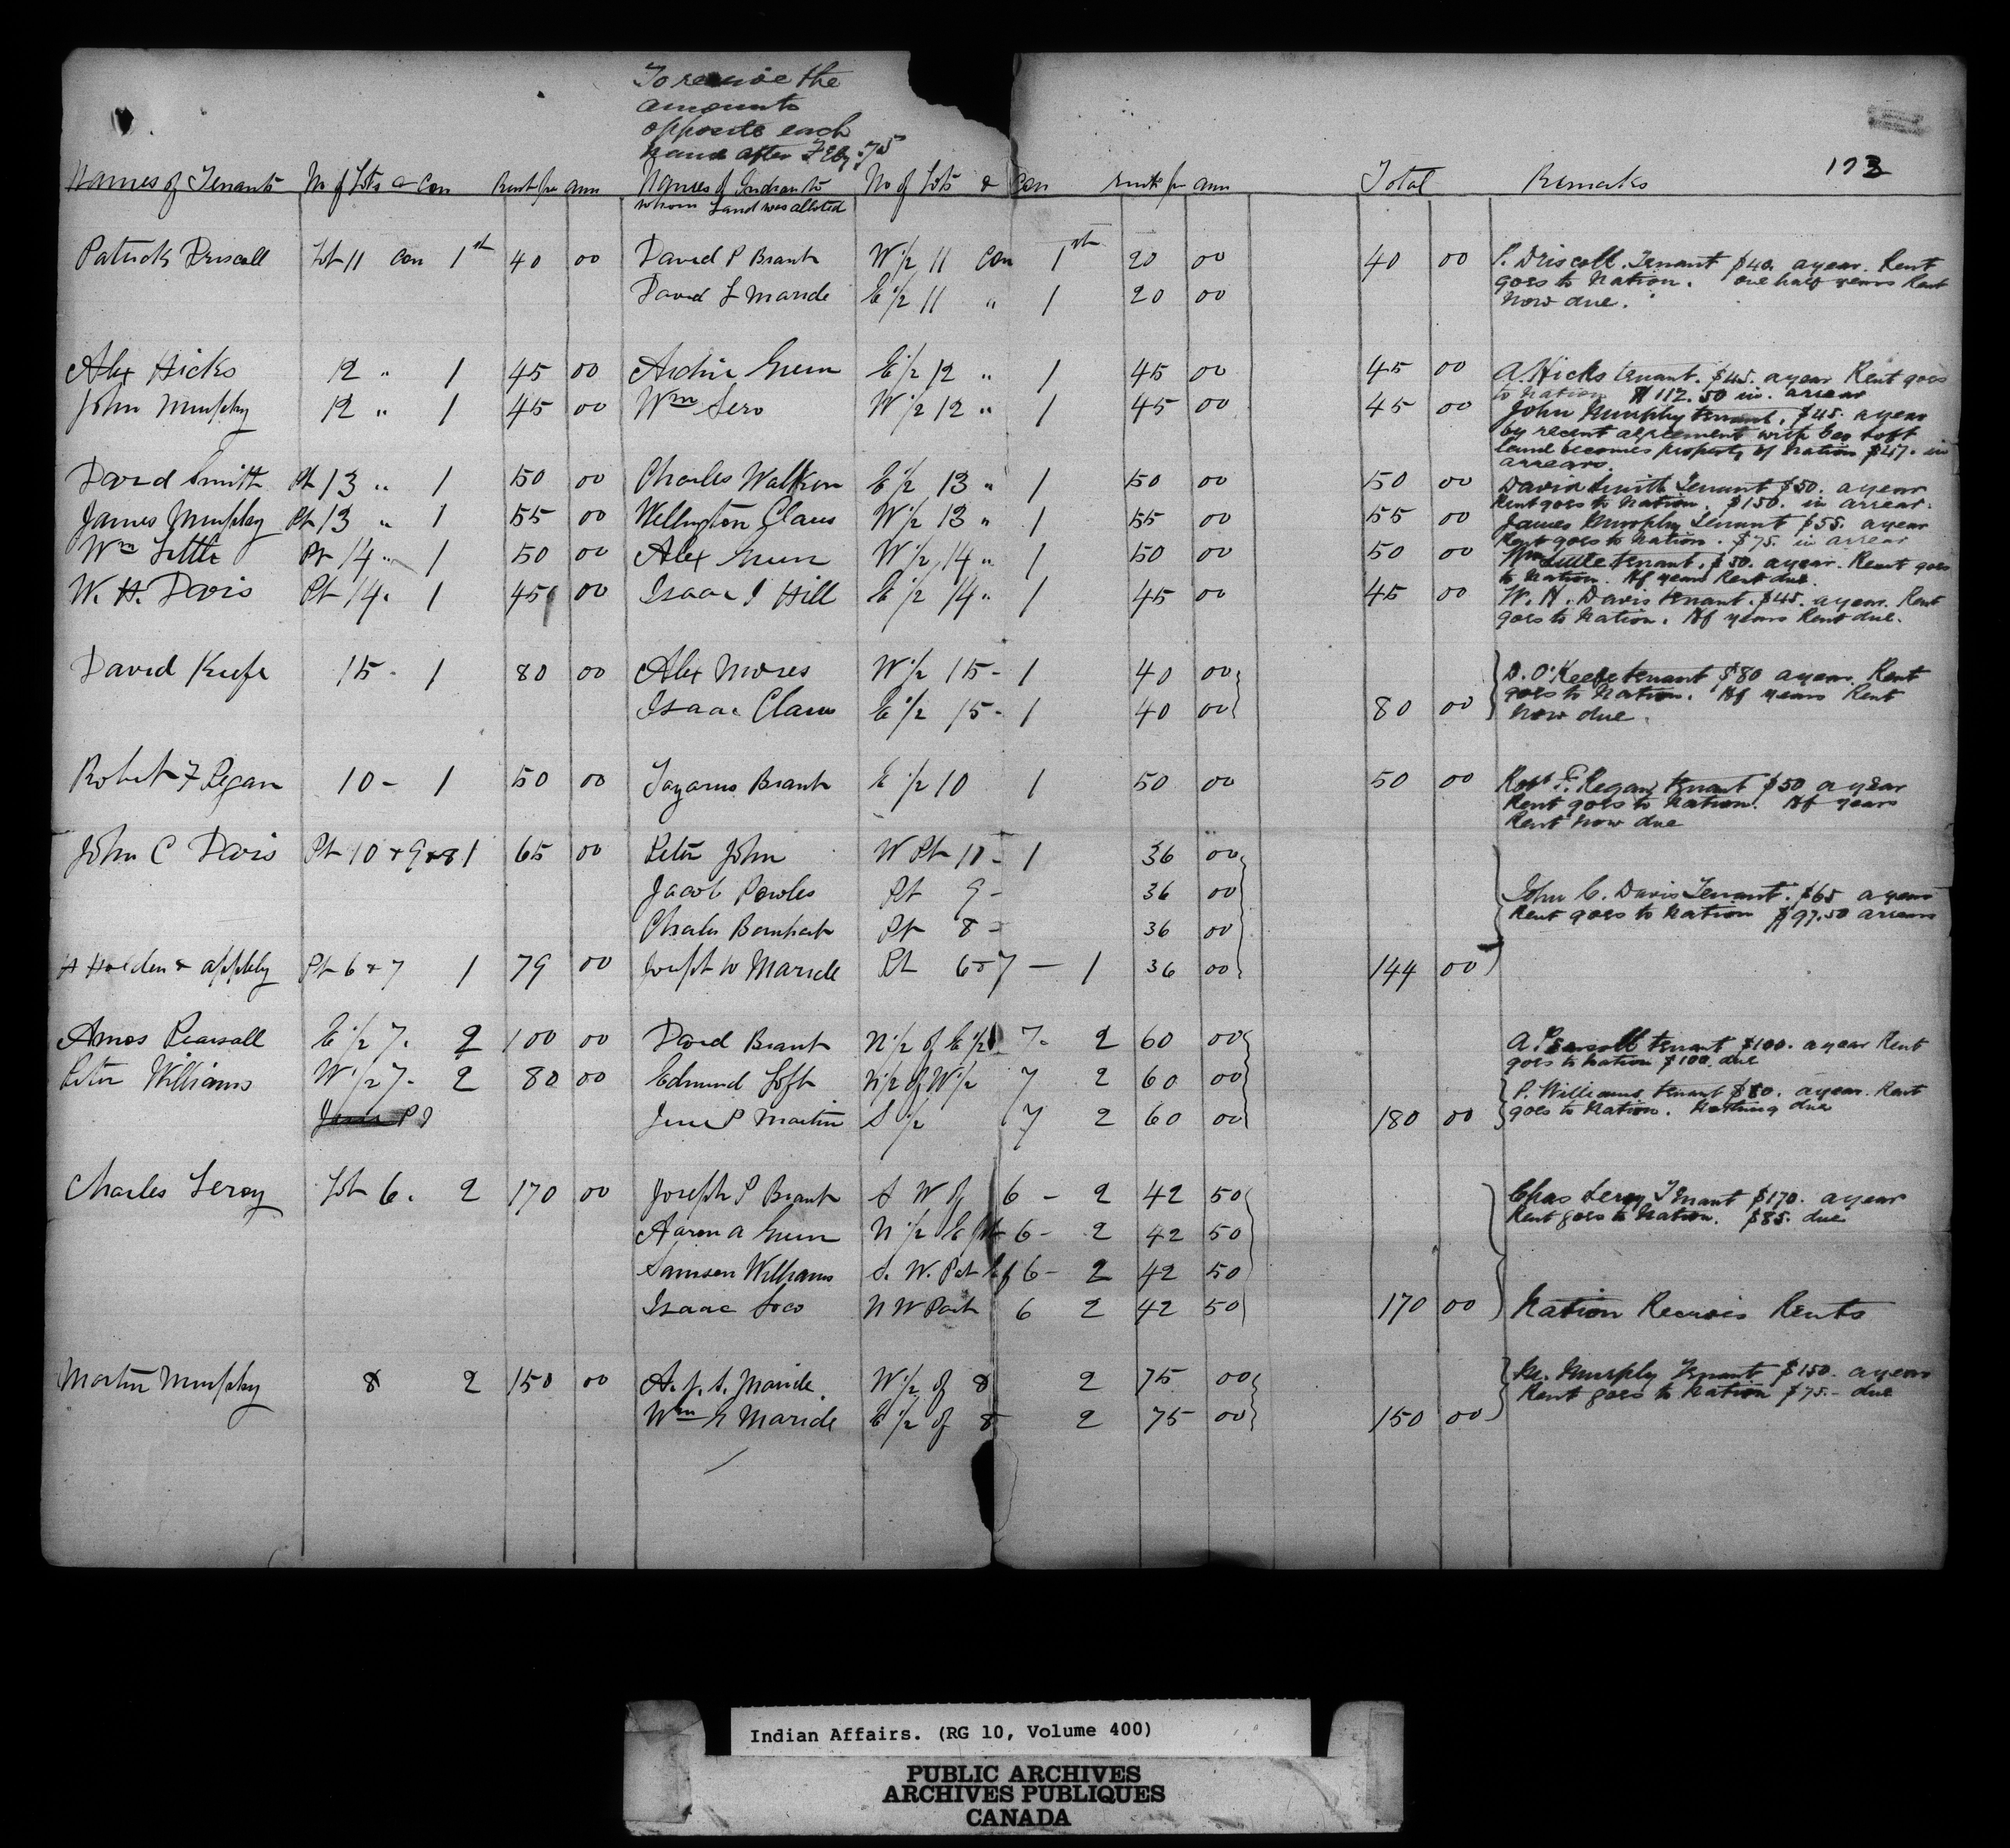 To receive the
amounts
opposite each
name after Feby. 75
173
Names of Tenants No of Lots & Con Rent per ann Names of Indians to No of Lots & Con Rents per ann Total Remarks
whom Land was allotted
Patrick Driscoll Lot 11 Con 1st 40 00 David P Brant W 1/2 11 Con 1st 20 00 40 00 P. Driscoll. Tenant $40. a year. Rent
David L Maricle E 1/2 11 " 1 20 00 goes to Nation. one half years Rent
now due.
Alex Hicks 12 " 1 45 00 Archie Green E 1/2 12 " 1 45 00 45 00 A. Hicks tenant. $45. a year Rent goes
to Nation $112.50 in. arrear
John Murphy 12 " 1 45 00 Wm Sero W 1/2 12 " 1 45 00 45 00 John Murphy tenant. $45. a year
by recent agreement with Geo Loft
land becomes property of Nation $47. in
arrears.
David Smith Pt 13 " 1 50 00 Charles Walker E 1/2 13 " 1 50 00 50 00 David Smith Tenant $50. a year
Rent goes to Nation. $150. in arrear.
James Murphy Pt 13 " 1 55 00 Wellington Claus W 1/2 13 " 1 55 00 55 00 James Murphy Tenant $55. a year
Rent goes to Nation. $75. in arrear
Wm Little Pt 14 " 1 50 00 Alex Green W 1/2 14 " 1 50 00 50 00 Wm Little tenant. $50. a year. Rent goes
to Nation. Hf years Rent due.
W. H. Davis Pt 14. 1 45 00 Isaac J Hill E 1/2 14 " 1 45 00 45 00 W. H. Davis tenant. $45. a year. Rent
goes to Nation. Hf years Rent due.
David Keefe 15 - 1 80 00 Alex Moses W 1/2 15 - 1 40 00 D. O'Keefe tenant $80 a year. Rent
goes to Nation. Hf years Rent
Isaac Claus E 1/2 15 - 1 40 00 80 00 now due.
Robert F Regan 10 - 1 50 00 Lazarus Brant E 1/2 10 1 50 00 50 00 Robt F. Regan tenant $50 a year
Rent goes to Nation. Hf years
Rent now due
John C Davis Pt 10 + 9 + 8 1 65 00 Peter John W Pt 10 - 1 36 00
Jacob Powles Pt 9 - 36 00 John C. Davis Tenant. $65 a year
Charles Bernhart Pt 8 - 36 00 Rent goes to Nation $97.50 arrears
H Holden & Appleby Pt 6 & 7 1 79 00 Joseph W Maricle Pt 6 & 7 - 1 36 00 144 00
Amos Pearsall E 1/2 7. 2 100 00 David Brant N 1/2 of E 1/2 7. 2 60 00 A Pearsall tenant $100. a year Rent
goes to Nation $100. due
Peter Williams W 1/2 7. 2 80 00 Edmund Loft N 1/2 of W 1/2 7 2 60 00 P. Williams tenant $80. a year. Rent
P Martin S 1/2 7 2 60 00 180 00 goes to Nation. Nothing due
Charles Leroy Lot 6. 2 170 00 Joseph P Brant S W of 6 - 2 42 50 Chas Leroy Tenant $170. a year
Rent goes to Nation. $85. due
Aaron A Green N 1/2 E 6 - 2 42 50
Samson Williams S. W. Pat of 6 - 2 42 50
Isaac N W Part 6 2 42 50 170 00 Nation Receives Rents
Martin Murphy 8 2 150 00 A. J. S. Maricle. W 1/2 of 8 2 75 00 M. Murphy Tenant $150. a year
Rent goes to Nation $75 - due
Wm R Maricle E 1/2 of 8 2 75 00 150 00
Indian Affairs. (RG 10, Volume 400)
PUBLIC ARCHIVES
ARCHIVES PUBLIQUES
CANADA